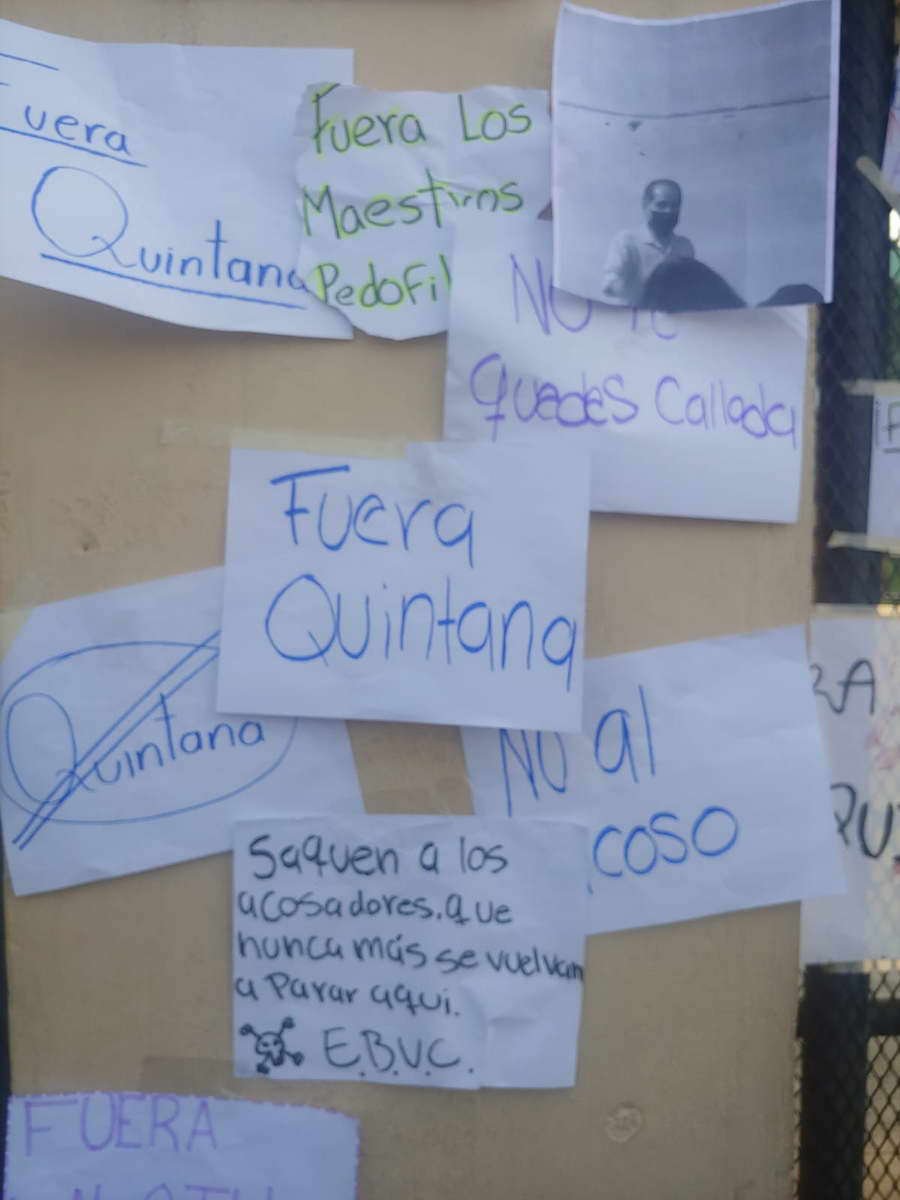 Fuera
Quintana
Fuera Los
Maestros
Pedofil
No Te
quedes callada
Fuera
Quintana
Quintana
No al
coso
Saquen a los
acosadores. que
nunca más se vuelvan
a Parar aquí.
E.B.V.C.
RA
QU
FUERA